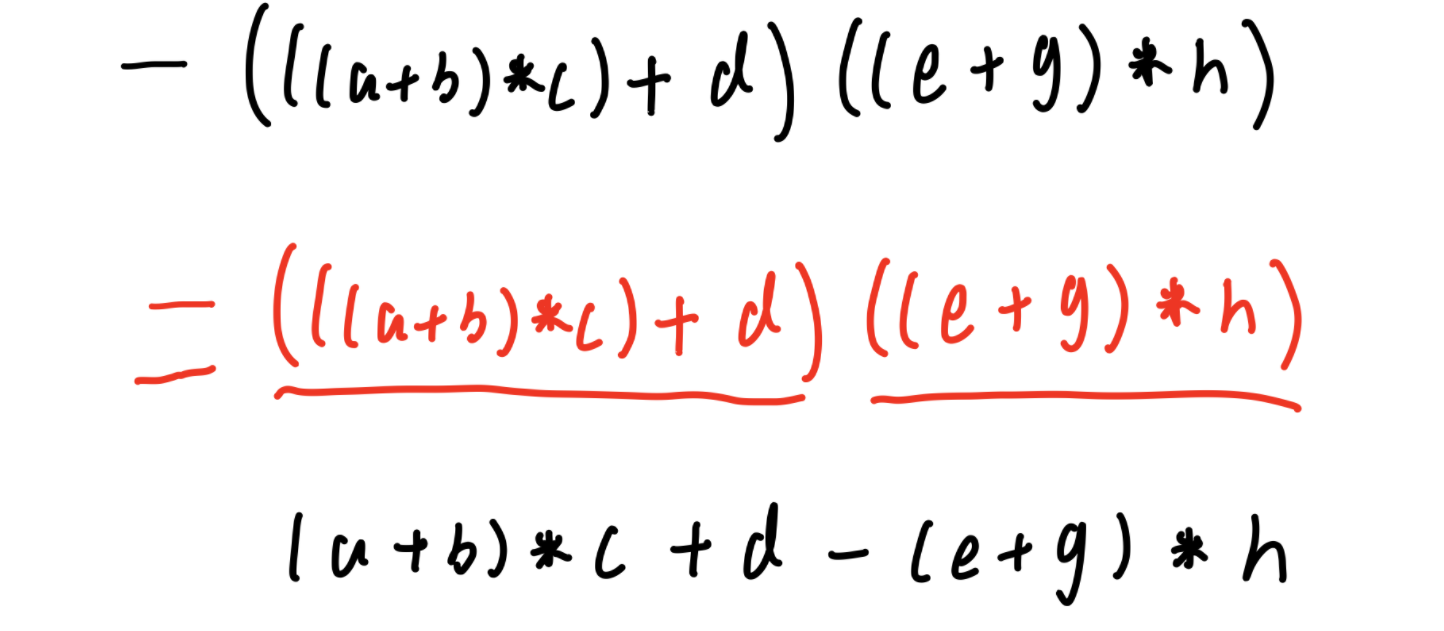 − (((a+b)*c)+ d) ((e + g) * h)
− (((a+b)*c)+ d) ((e + g) * h)
(a+b) * c + d − (e+g) * h